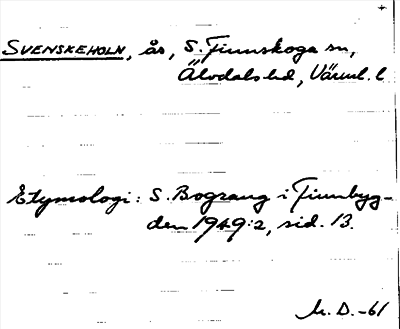 SVENSKEHOLN, ås, S. Finnskoga sn,
Älvdals hd, Värml. l
Etymologi: S. Bograng i Finnbyg-
den 1949:2, sid. 13.
M. D. -61